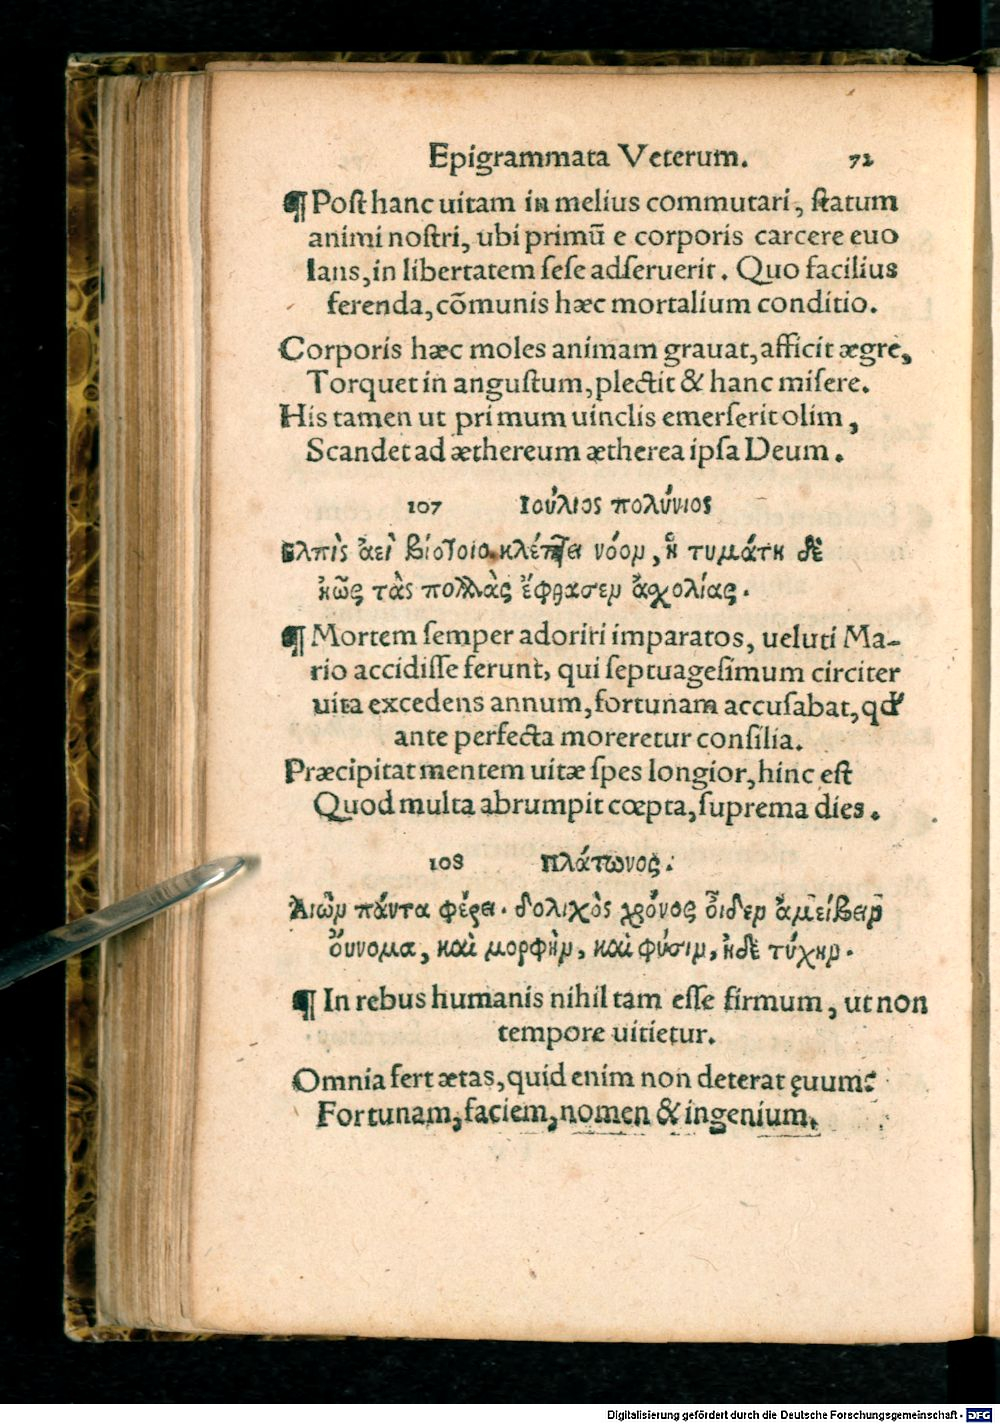 Epigrammata Veterum. 72
¶ Post hanc uitam in melius commutari, statum
animi nostri, ubi primū e corporis carcere euo
lans, in libertatem sese adseruerit. Quo facilius
ferenda, cōmunis hæc mortalium conditio.
Corporis hæc moles animam grauat, afficit ægre,
Torquet in angustum, plectit & hanc misere.
His tamen ut primum uinclis emerserit olim,
Scandet ad æthereum ætherea ipsa Deum.
107 Ιούλιος πολύνιος
Ελπὶς ἀεὶ βιότοιο κλέπτει νόον, ἡ τυμάτη δὲ
ἠὼς τὰς πολλὰς ἔφθασεν ἀχολίας.
¶ Mortem semper adoriri imparatos, ueluti Ma-
rio accidisse ferunt, qui septuagesimum circiter
uita excedens annum, fortunam accusabat, qd'
ante perfecta moreretur consilia.
Præcipitat mentem uitæ spes longior, hinc est
Quod multa abrumpit cœpta, suprema dies.
108 Πλάτωνος.
Αιὼν πάντα φέρει. δολιχὸς χρόνος οἶδεν ἀμείβειν
οὔνομα, καὶ μορφὴν, καὶ φύσιν, ἠδὲ τύχην.
¶ In rebus humanis nihil tam esse firmum, ut non
tempore uitietur.
Omnia fert ætas, quid enim non deterat ęuum?
Fortunam, faciem, nomen & ingenium.
Digitalisierung gefördert durch die Deutsche Forschungsgemeinschaft - DFG